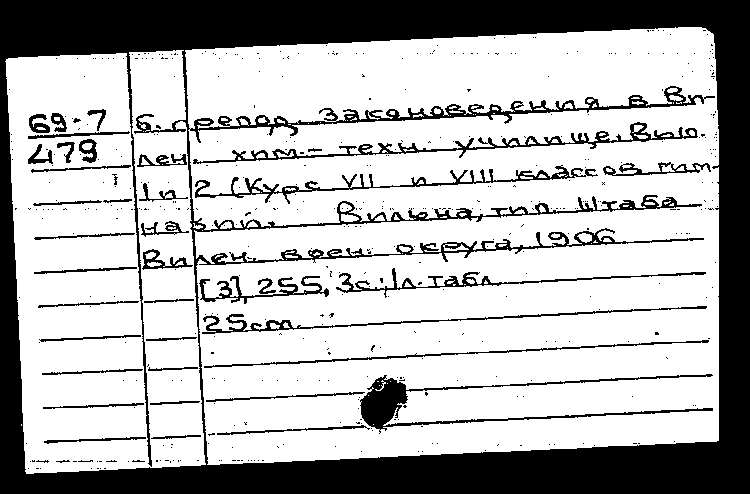 69-7 б. препод. законоведения в Ви-
479 лен. хим.-техн. училище. Вып.
1 и 2 (Курс VII и VIII классов гим-
назий. Вильна, тип. Штаба
Вилен. воен. округа, 1906.
[3], 255, 3с.; 1л. табл.
25см.